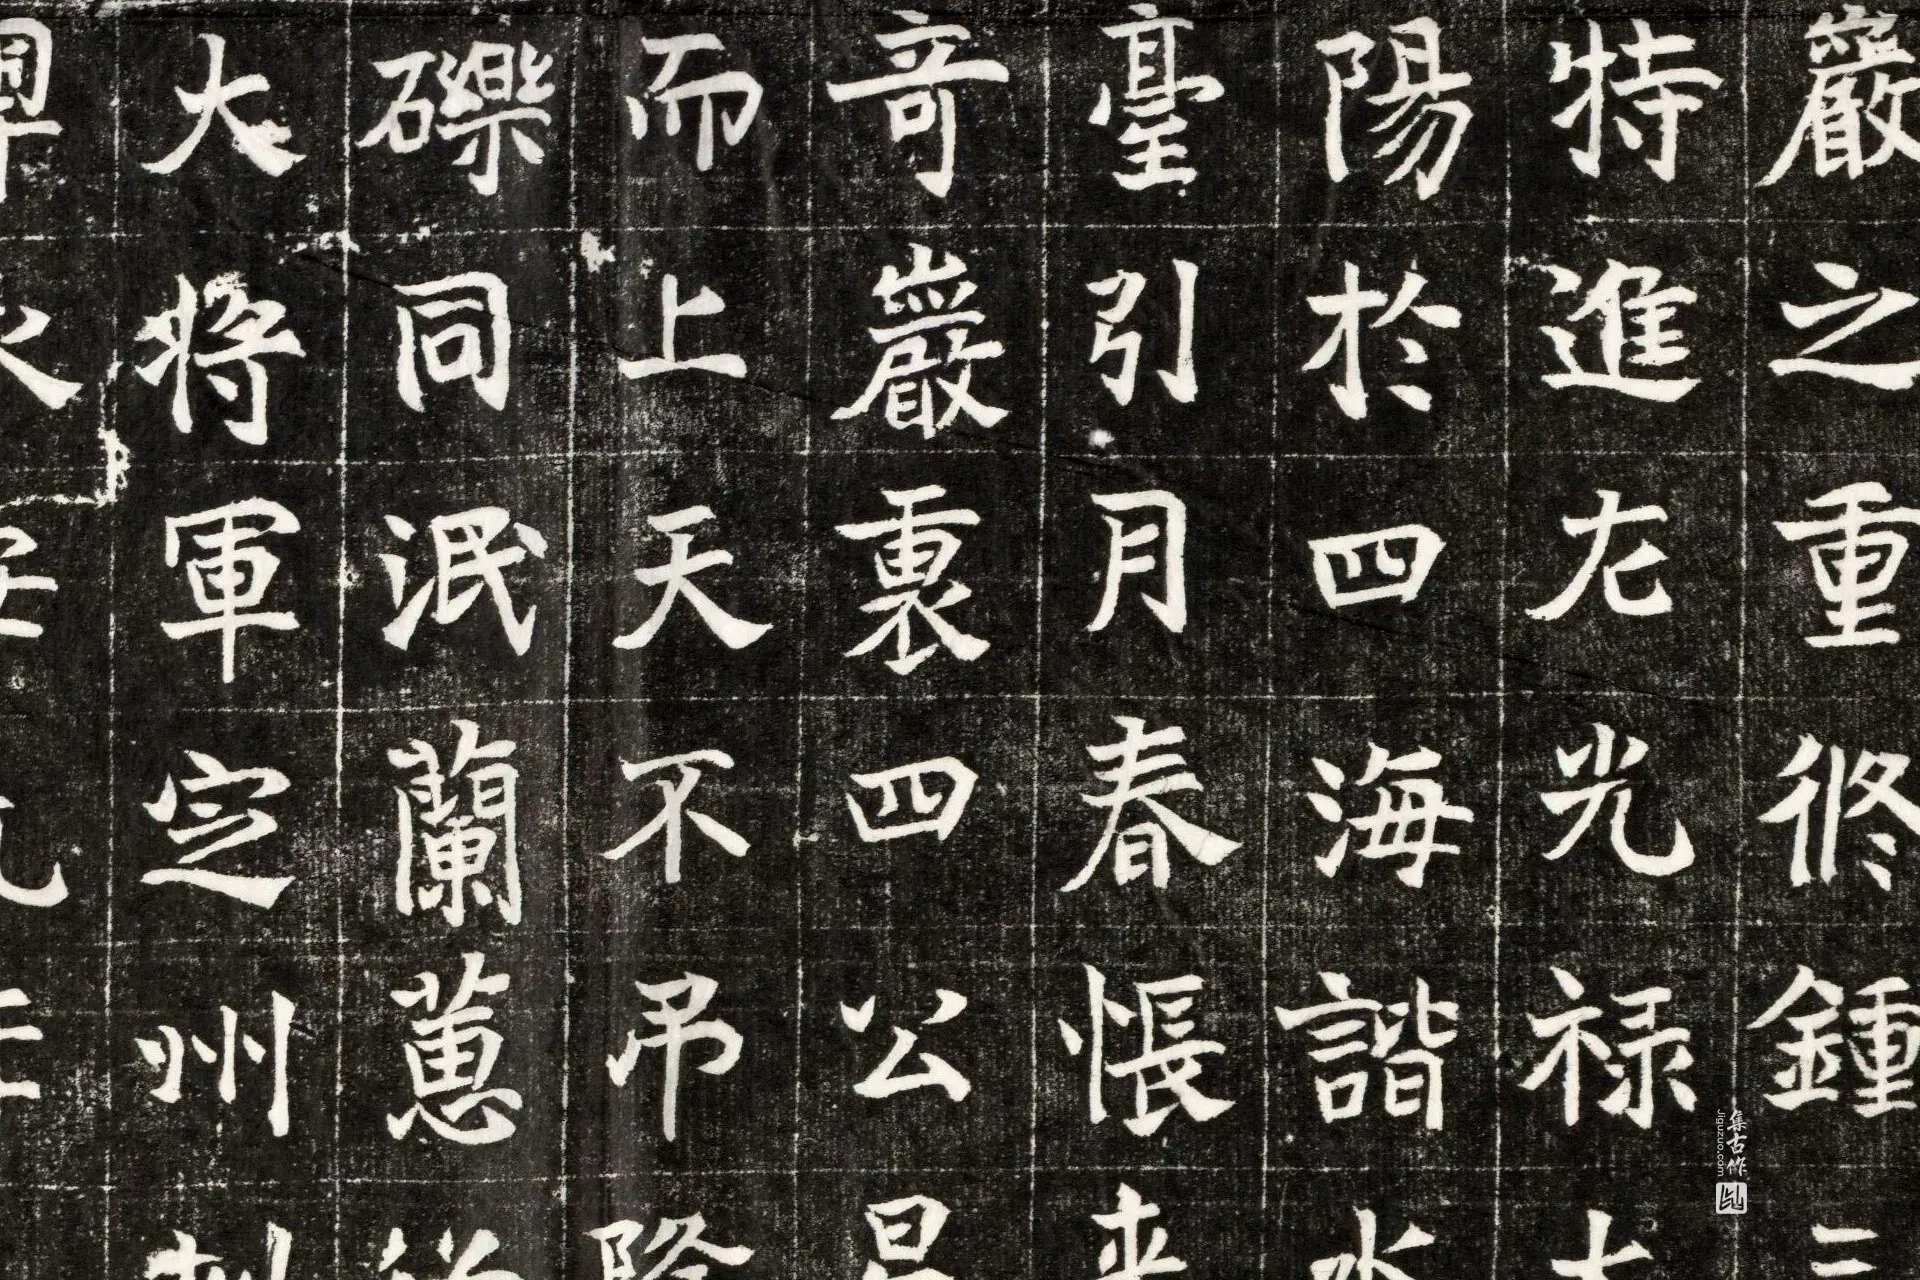 巖之重峰鍾三
特進左光禄大
陽於四海諧水
臺引月春悵来
奇巖裏四公是
而上天不弔降
礫同泯蘭蕙
大将軍定州刺
集古作
Jiguzuo.com